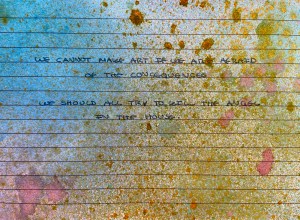 WE CANNOT MAKE ART IF WE ARE AFRAID
OF THE CONSEQUENCES
WE SHOULD ALL TRY TO KILL THE ANGEL
IN THE HOUSE